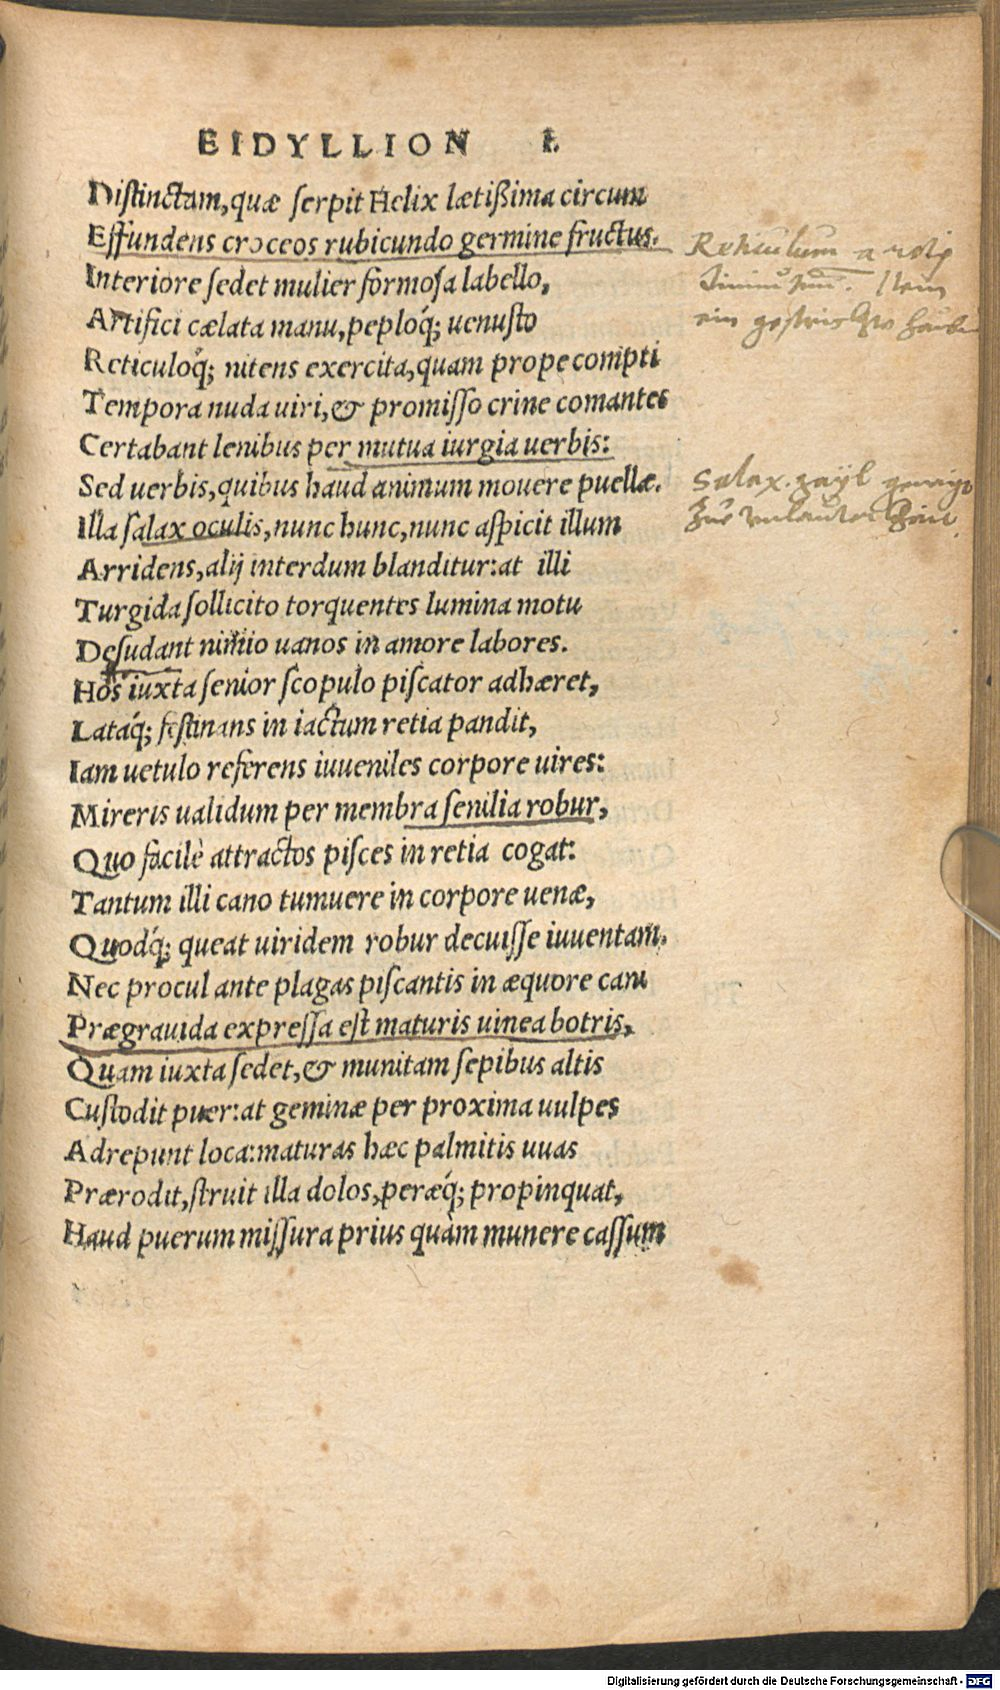 EIDYLLION I.
Distinctam, quæ serpit Helix lætißima circum
Effundens croceos rubicundo germine fructus.
Interiore sedet mulier formosa labello,
Artifici cælata manu, peploq́; uenusto
Reticuloq́; nitens exercita, quam prope compti
Tempora nuda uiri, & promisso crine comantes
Certabant lenibus per mutua iurgia uerbis:
Sed uerbis, quibus haud animum mouere puellæ.
Illa salax oculis, nunc hunc, nunc aspicit illum
Arridens, alij interdum blanditur: at illi
Turgida sollicito torquentes lumina motu
Desudant nimio uanos in amore labores.
Hos iuxta senior scopulo piscator adhæret,
Lataq́; festinans in iactum retia pandit,
Iam uetulo referens iuueniles corpore uires:
Mireris ualidum per membra senilia robur,
Quo facilè attractos pisces in retia cogat:
Tantum illi cano tumuere in corpore uenæ,
Quodq́; queat uiridem robur decuisse iuuentam.
Nec procul ante plagas piscantis in æquore cani
Prægrauida expressa est maturis uinea botris,
Quam iuxta sedet, & munitam sepibus altis
Custodit puer: at geminæ per proxima uulpes
Adrepunt loca: maturas hæc palmitis uuas
Prærodit, struit illa dolos, peræq́; propinquat,
Haud puerum missura prius quàm munere cassum
Reticulum a
Item
ein
Salax. gayl
Digitalisierung gefördert durch die Deutsche Forschungsgemeinschaft - DFG